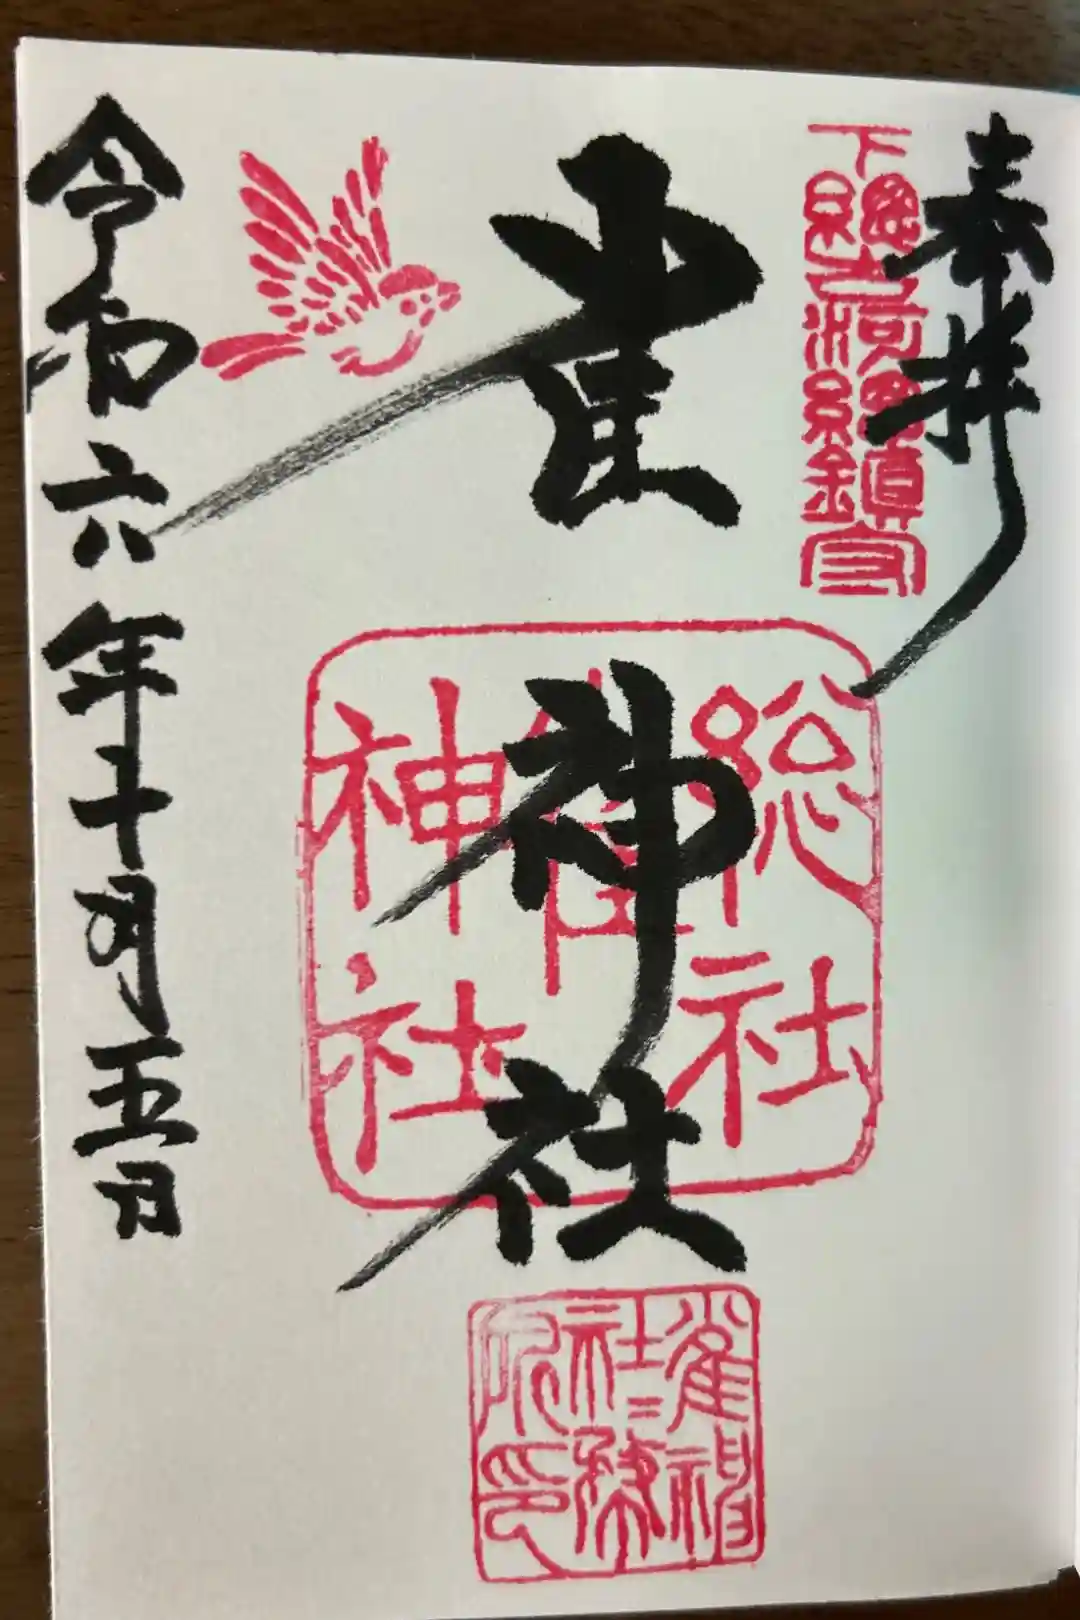 奉拝
下總古河總鎮守
雀神社
総社
雀
神社
雀神
社々務
所印
令和六年十月五日